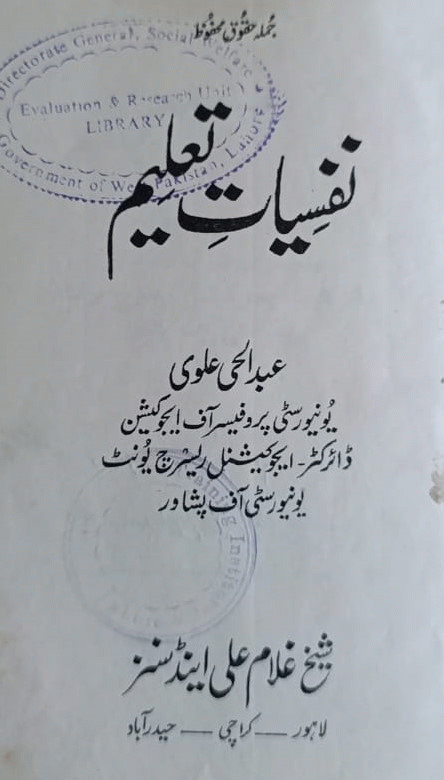 جملہ حقوق محفوظ
Directorate General, Social Welfare
Evaluation & Research Unit
LIBRARY
Government of West Pakistan, Lahore
نفسیاتِ تعلیم
عبدالحی علوی
یُونیورسٹی پروفیسر آف ایجوکیشن
ڈائرکٹر۔ ایجوکیشنل ریسرچ یُونٹ
یونیورسٹی آف پشاور
Training Institute
شیخ غلام علی اینڈ سنز
لاہور — کراچی — حیدرآباد